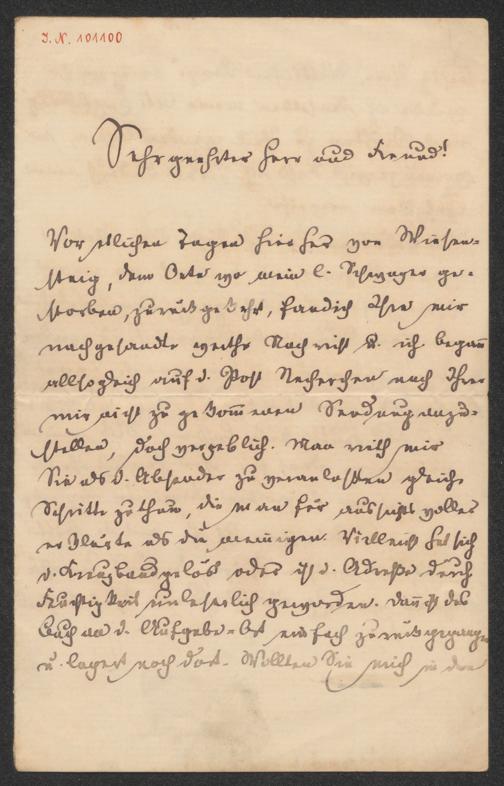 J. N. 101100
Sehr geehrter Herr und Freund!
Vor etlichen Tagen hierher von Wiesen-
steig, dem Orte wo mein l. Schwager ge-
storben, zurückgekehrt, fand ich Ihre mir
nachgesandte werthe Nachricht u. ich begann
allsogleich auf d. Post Recherchen nach Ihrer
mir nicht zu gekommenen Sendung anzu-
stellen, doch vergeblich. Man rieth mir
Sie als d. Absender zu veranlassen gleiche
Schritte zu thun, die man für aussichtsvoller
erklärte als die meinigen. Vielleicht hat sich
d. Kreuzband gelöst oder ist d. Adresse durch
Feuchtigkeit unleserlich geworden. Dann ist das
Buch an d. Aufgabe-Ort einfach zurückgegangen
u. lagert noch dort. Wollten Sie mich in den